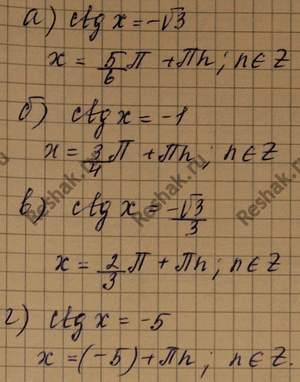 а) ctg x = -√3
x = 5/6 π + πn; n ∈ Z
б) ctg x = -1
x = 3/4 π + πn; n ∈ Z
в) ctg x = -√3/3
x = 2/3 π + πn; n ∈ Z
г) ctg x = -5
x = (-5) + πn; n ∈ Z.
Reshak.ru
Reshak.ru